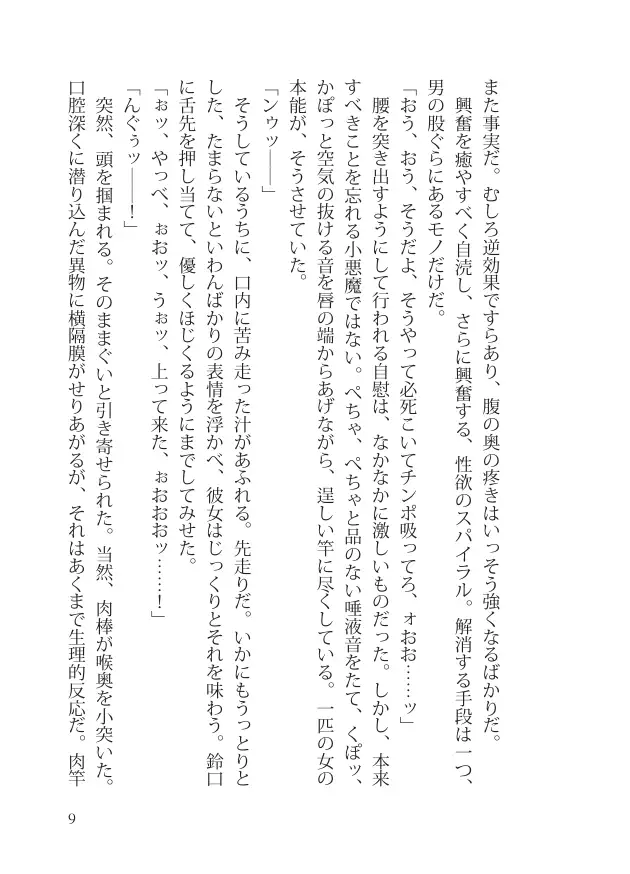 また事実だ。むしろ逆効果ですらあり、腹の奥の疼きはいっそう強くなるばかりだ。
　興奮を癒やすべく自涜し、さらに興奮する、性欲のスパイラル。解消する手段は一つ、
男の股ぐらにあるモノだけだ。
「おう、おう、そうだよ、そうやって必死こいてチンポ吸ってろ、ォおお……ッ」
　腰を突き出すようにして行われる自慰は、なかなかに激しいものだった。しかし、本来
すべきことを忘れる小悪魔ではない。ぺちゃ、ぺちゃと品のない唾液音をたて、くぽッ、
かぽっと空気の抜ける音を唇の端からあげながら、逞しい竿に尽くしている。一匹の女の
本能が、そうさせていた。
「ンゥッ――」
　そうしているうちに、口内に苦み走った汁があふれる。先走りだ。いかにもうっとりと
した、たまらないといわんばかりの表情を浮かべ、彼女はじっくりとそれを味わう。鈴口
に舌先を押し当てて、優しくほじくるようにまでしてみせた。
「ぉッ、やっべ、ぉおッ、うぉッ、上って来た、ぉおおおッ……！」
「んぐぅッ――！」
　突然、頭を掴まれる。そのままぐいと引き寄せられた。当然、肉棒が喉奥を小突いた。
口腔深くに潜り込んだ異物に横隔膜がせりあがるが、それはあくまで生理的反応だ。肉竿
9